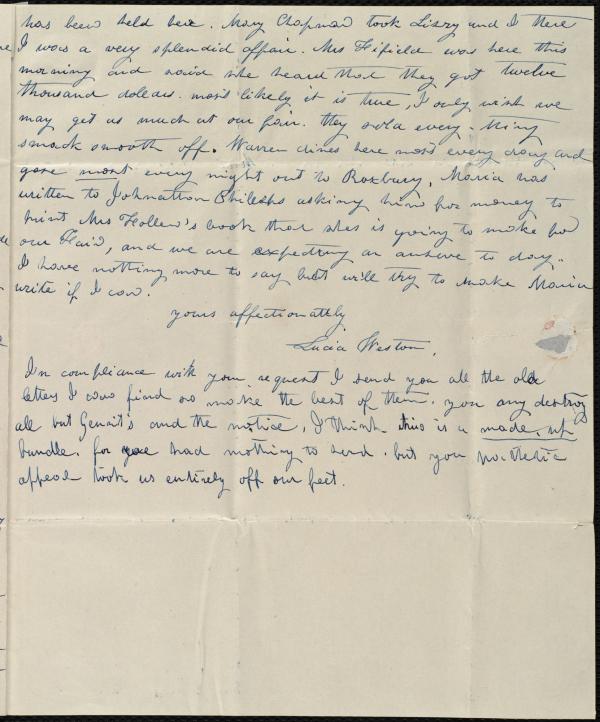 has been held here. Mary Chapman took Lizzy and I there
I was a very splendid affair. Mrs Fifield was here this
morning and said she heard that they got twelve
thousand dolears. most likely it is true, I only wish we
may get as much at our fair. they sold every-thing
smack smooth off. Warren dines here most every day and
gose most every night out to Roxbury. Maria has
written to Johnathan Phileps asking him for money to
print Mrs Follen's book that she is going to make for
our Fair, and we are expecting an answe to day.
I have nothing more to say but will try to make Maria
write if I can.
yours affectionattly
Lucia Weston.
In compliance with your request I send you all the old
letters I can find so make the best of them. you any destroy
all but Gerrit's and the notice, I think this is a made up
bundle. for had nothing to send. but you pathetic
appeal took us entirely off our feet.